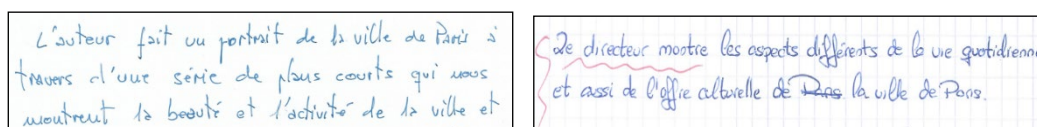 L'auteur fait un portrait de la ville de Paris à
travers d'une série de plans courts qui nous
montrent la beauté et l'activité de la ville et
Le directeur montre les aspects différents de la vie quotidienne
et aussi de l'offre culturelle de Paris la ville de Paris.